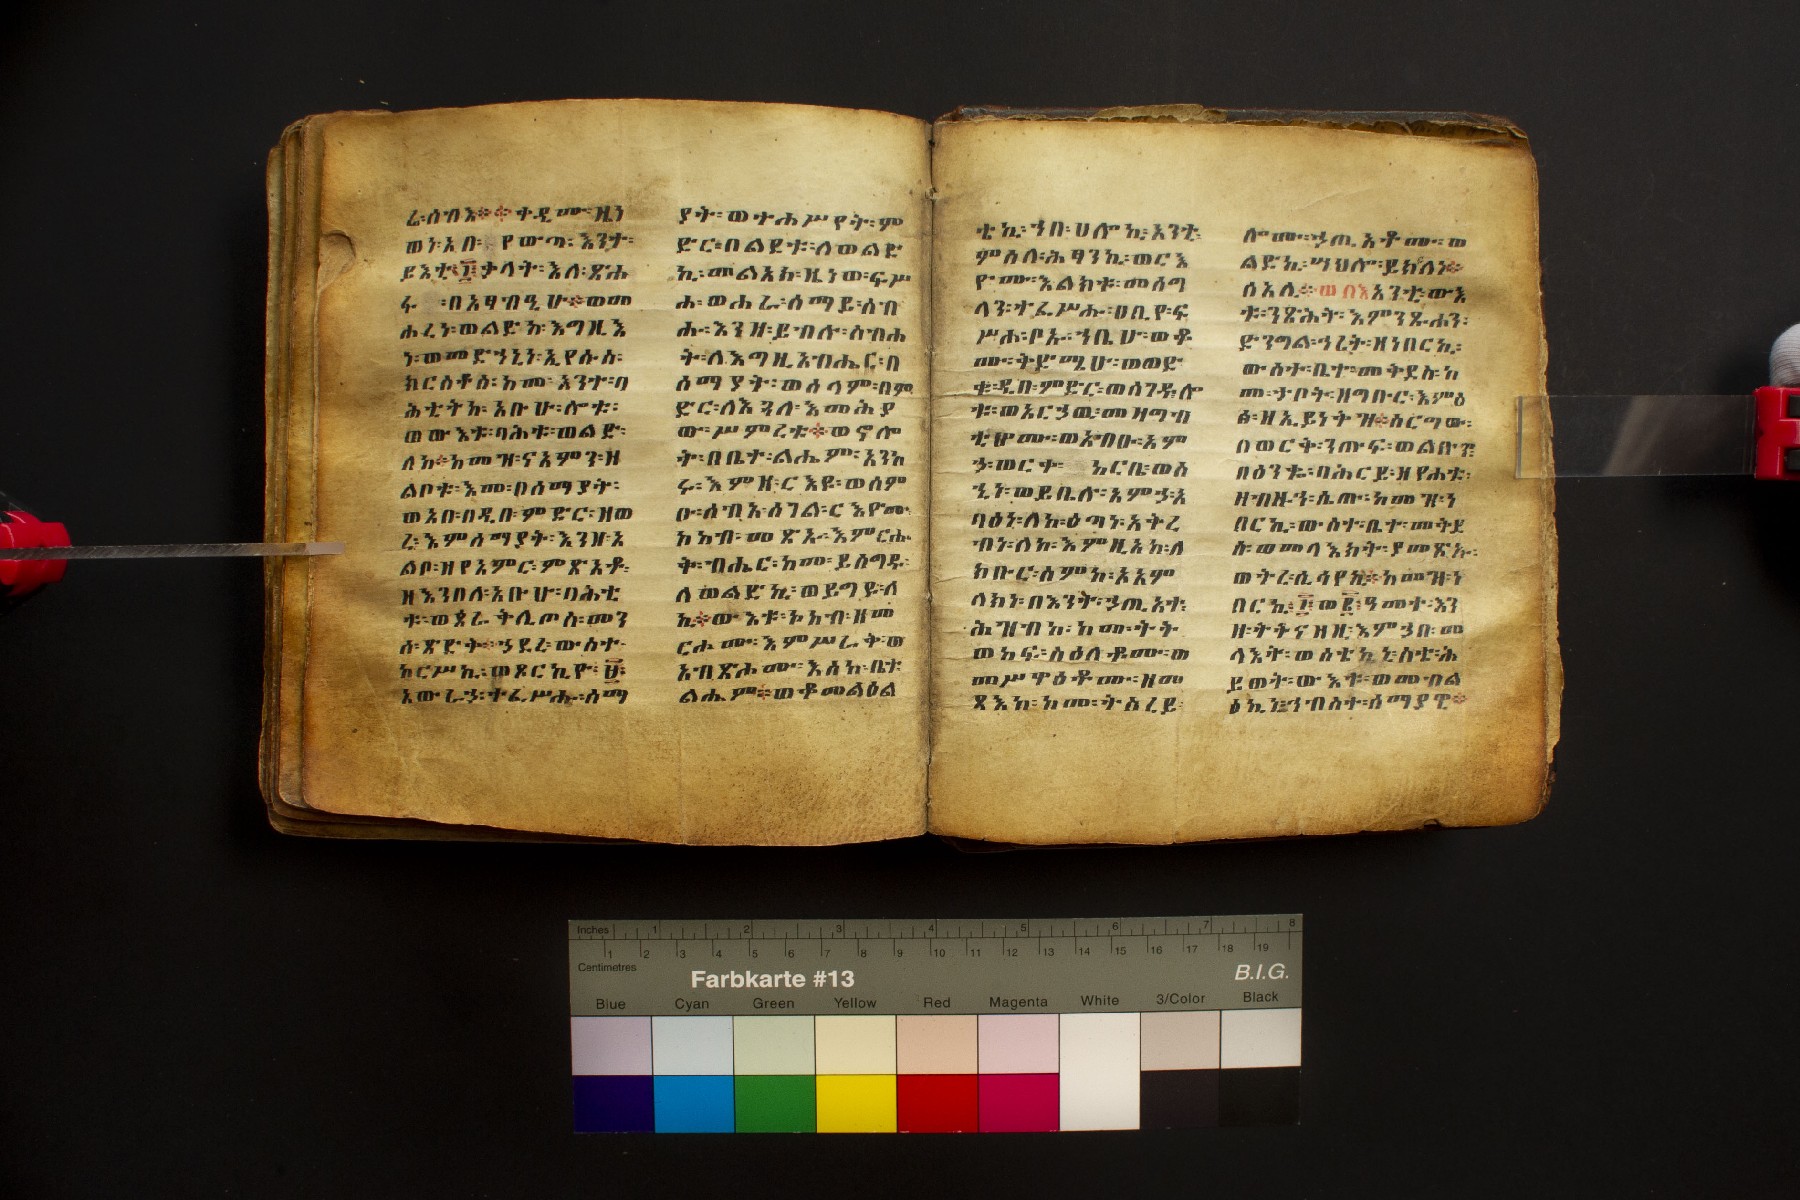 ሬ፡ሰብእ፨ተዲሙ፡ዚን
ወነ፡አቡ፡ የውጣ፡እንተ፡
ይእቲ፡፲ቃላት፡እለ፡ጸሐ
ፋ፡ በአፃብዒሁ፨ወመ
ሐረነ፡ወልድከ፡እግዚእ
ነ፡ወመድኃኒነ፡ኢየሱስ፡
ክርስቶስ፡ከመ፡አንተ፡ባ
ሕቲትከ፡አቡሁ፡ሎቱ፡
ወውእቱ፡ባሕቱ፡ወልድ፡
ለከ፨ከመዝ፡ናአምን፡ዘ
ልቦቱ፡እመ፡በሰማያት፡
ወአበ፡በዲበ፡ምድር፡ዝወ
ረ፡እምሰማያት፡እንዘ፡አ
ልቦ፡ዘየአምር፡ምጽአቶ፡
ዘእንበለ፡አቡሁ፡ባሕቲ
ቱ፡ወጰራቅሊጦስ፡መን
ሰ፡ጸድቅ፡ኃደረ፡ውስተ፡
ከርሥኪ፡ወጾርኪዮ፡፱፡
አውራኃ፡ተፈሥሑ፡ሰማ
ያት፡ወተሐሥየት፡ም
ድር፡በልደቱ፡ለወልድ
ኪ፡መልአክ፡ዜነወ፡ፍሥ
ሐ፡ወሐራ፡ሰማይ፡ሰብ
ሑ፡እንዘ፡ይብሉ፡ስብሐ
ት፡ለእግዚአብሔር፡በ
ሰማያት፡ወሰላም፡በም
ድር፡ለእጓለ፡እመሕያ
ው፡ሥምረቱ፨ወኖሎ
ት፡በቤተ፡ልሔም፡አንከ
ሩ፡እምዘ፡ርእዩ፡ወሰም
ዑ፡ሰብአ፡ሰገል፡ርእዮሙ፡
ኮከበ፡መጽኡ፡እምርሑ
ቅ፡ብሔር፡ከመ፡ይስግዱ፡
ለወልድኪ፡ወይግይ፡ለ
ኪ፨ውእቱ፡ኮከብ፡ዘመ
ርሖሙ፡እምሥራቅ፡ወ
አብጽሖሙ፡እስከ፡ቤተ
ልሔም፨ወቆመልዕል
ቲኪ፡ኀበ፡ሀሎኪ፡አንቲ፡
ምስለ፡ሕፃንኪ፡ወርእ
ዮሙ፡እልክቱ፡መሰግ
ላን፡ተፈሥሑ፡ዐቢየ፡ፍ
ሥሐ፡ቦኡ፡ኀቤሁ፡ወቆ
ሙ፡ቅድሜሁ፡ወወድ
ቁ፡ዲበ፡ምድር፡ወሰገዱ፡ሎ
ቱ፡ወአርኃዉ፡መዛግብ
ቲሆሙ፡ወአብኡ፡አም
ኃ፡ወርቀ፡ ከርቤ፡ወስ
ኂነ፡ወይቤሉ፡አምኃ፡አ
ባዕነ፡ለከ፡ዕጣነ፡አቅረ
ብነ፡ለከ፡እምዚአከ፡ለ
ክቡር፡ስምከ፡ኦአም
ላክነ፡በእንተ፡ኃጢአተ፡
ሕዝብከ፡ከመ፡ትት
ወከፍ፡ስዕለቶሙ፡ወ
መሥዋዕቶሙ፡ዘመ
ጻእከ፡ከመ፡ትስረይ፡
ሎሙ፡ኃጢአቶሙ፡ወ
ልድኪ፡ሣህሎ፡ይክለነ፨
ሰአሊ፨ወበእ አንቲ፡ውእ
ቱ፡ንጽሕት፡እምንጹሐን፡
ድንግል፡ኀሪት፡ዘነበርኪ፡
ውስተ፡ቤተ፡መቅደስ፡ከ
መ፡ታቦት፡ዘግቡር፡እምዕ
ፅ፡ዘኢይነቅዝ፨ስርግው፡
በወርቅ፡ንጡፍ፡ወልቡጥ
በዕንቈ፡ባሕርይ፡ዘየሐቱ፡
ዘብዙኅ፡ሤጡ፡ከመዝ፡ነ
በርኪ፡ውስተ፡ቤተ፡መቅደ
ስ፡ወመላእክት፡ያመጽኡ፡
ወትረ፡ሲሳየኪ፨ከመዝ፡ነ
በርኪ፡፲ወ፪፡ዓመተ፡እን
ዘ፡ትትናዘዚ፡እምኃበ፡መ
ላእክት፡ወስቴኪኒ፡ስቴ፡ሕ
ይወት፡ውእቱ፡ወመብል
ዕኪኒ፡ኅብስተ፡ሰማያዊ፨
Inches 1 2 3 4 5 6 7 8
Centimetres 1 2 3 4 5 6 7 8 9 10 11 12 13 14 15 16 17 18 19
Farbkarte #13 B.I.G.
Blue Cyan Green Yellow Red Magenta White 3/Color Black